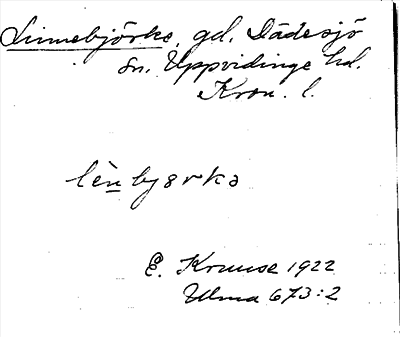 Linnebjörke, gd. Dädesjö
sn. Uppvidinge hd.
Kron. l.
lènbjørkə
E. Kruuse 1922
Ulma 673:2